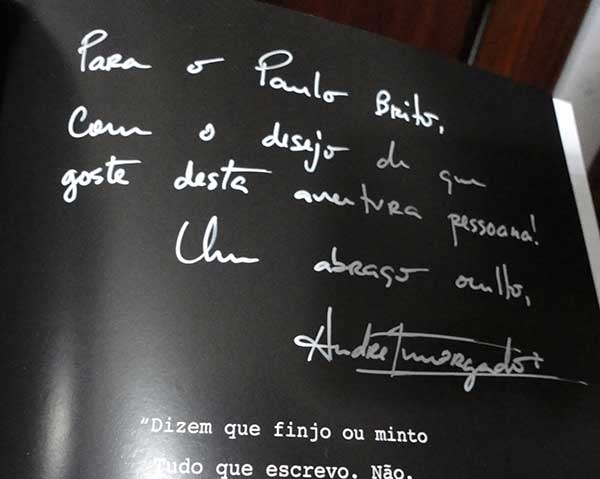 Para o Paulo Brito,
Com o desejo de que
goste desta aventura pessoana!
Um abraço oculto,
André Morgado
"Dizem que finjo ou minto
Tudo que escrevo. Não.